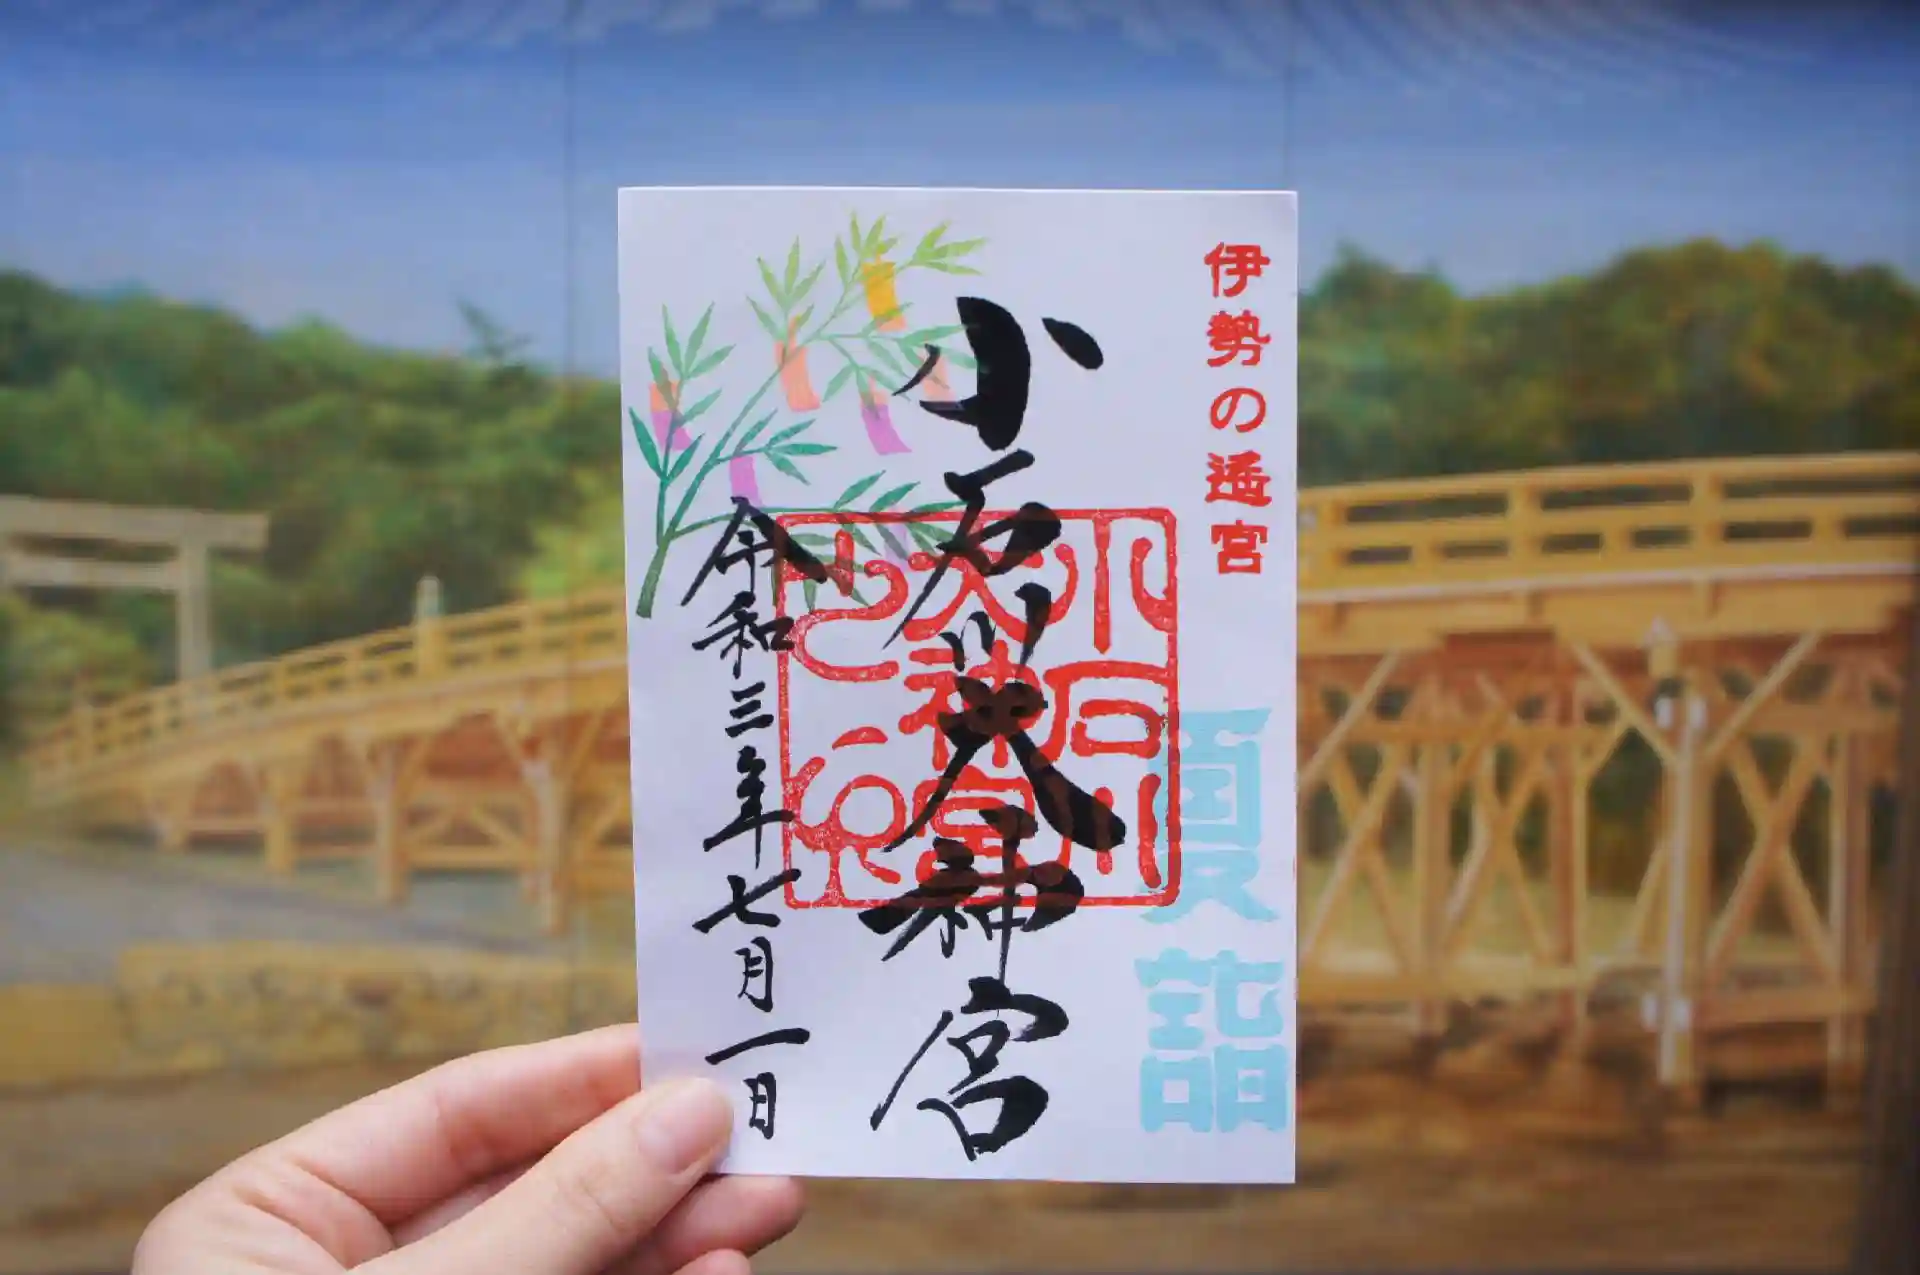 伊勢の遥宮
夏詣
小石川大神宮
小石川
大神宮
令和三年七月一日